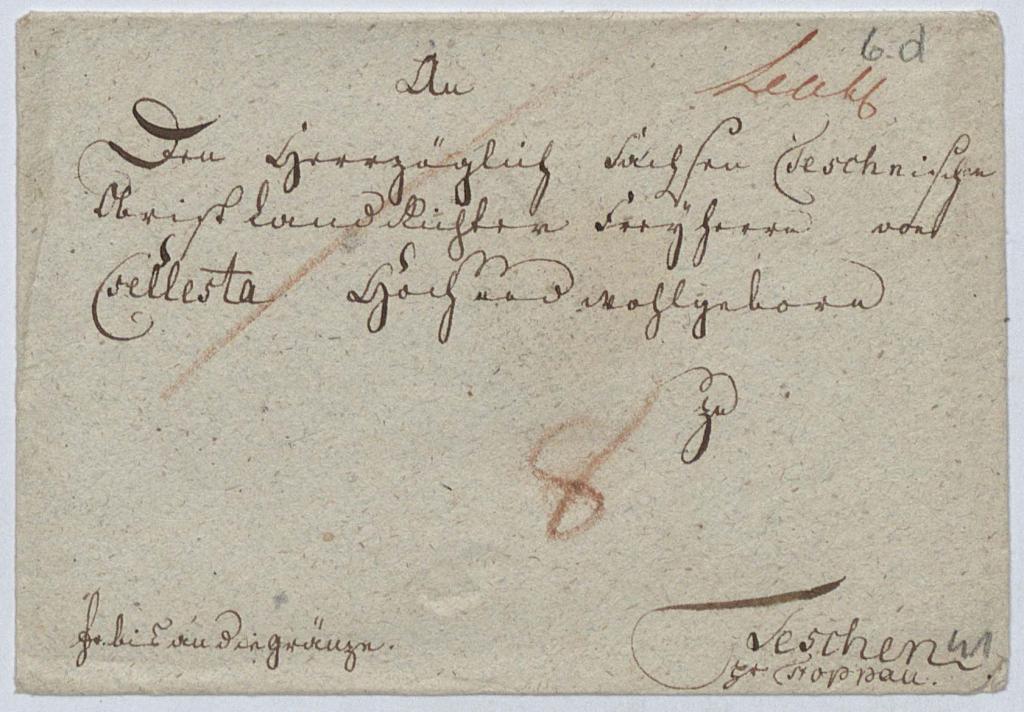 6.d
An
Den Herrzöglich Sachsen Teschnischen
Obrist Land Richter Freyherrn von
Cselesta Hoch und wohlgeborn
zu
8
fr. bis an die gränze.
Teschen
pr Troppau.